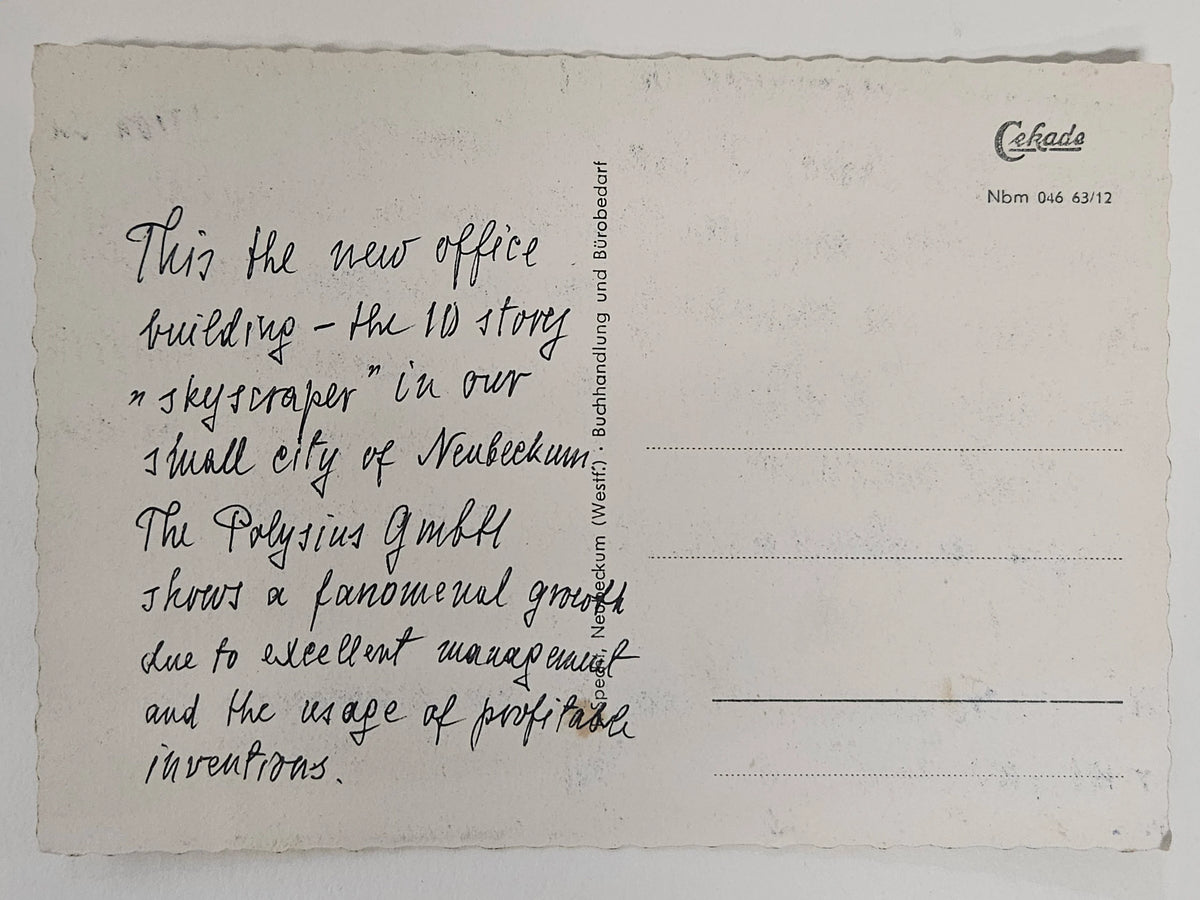 This the new office
building – the 10 story
„skyscraper” in our
small city of Neubeckum.
The Polysius GmbH
shows a fanomenal growth
due to excellent management
and the usage of profitable
inventions.
Specht, Neubeckum (Westf.) · Buchhandlung und Bürobedarf
Cekade
Nbm 046 63/12